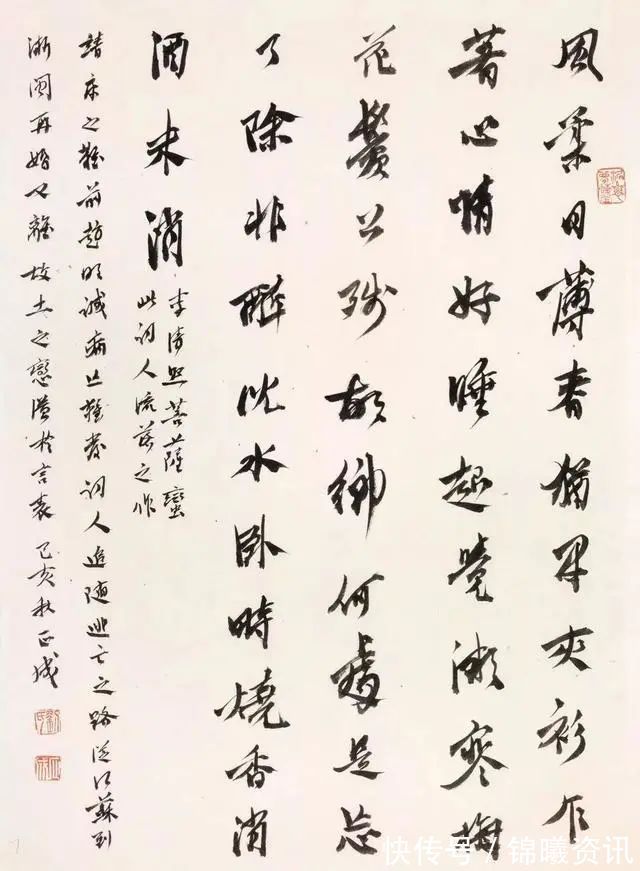 風柔日薄春猶早夾衫乍
著心情好睡起覺微寒梅
花鬢上殘故鄉何處是忘
了除非醉沈水卧時燒香消
酒未消
李清照菩薩蠻
此詞人流落之作
靖康之難前趙明誠病亡難詞人追隨逃亡之路從江蘇到
浙閩再婚又離故土之戀溢於言表 己亥秋正成
劉氏
正成
快传号/锦曦资讯